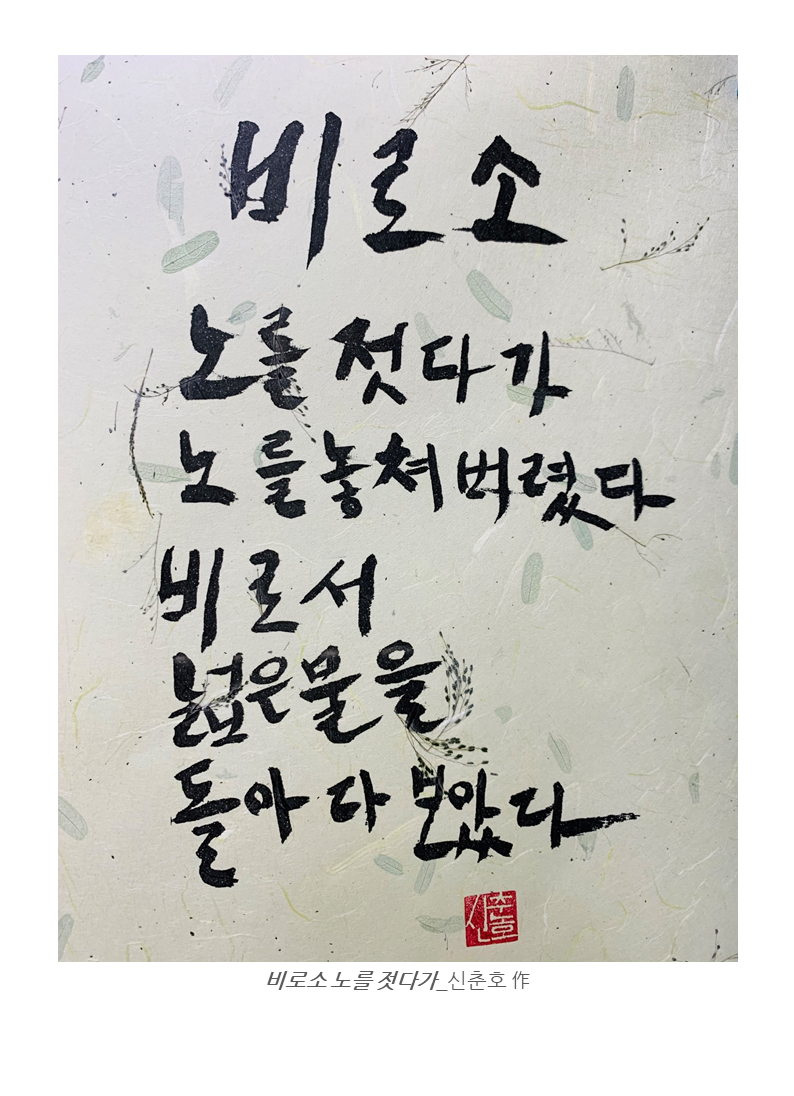 비로소
노를 젓다가
노를놓쳐버렸다
비로서
넓은물을
돌아다보았다
신춘호
비로소 노를 젓다가_신춘호 作